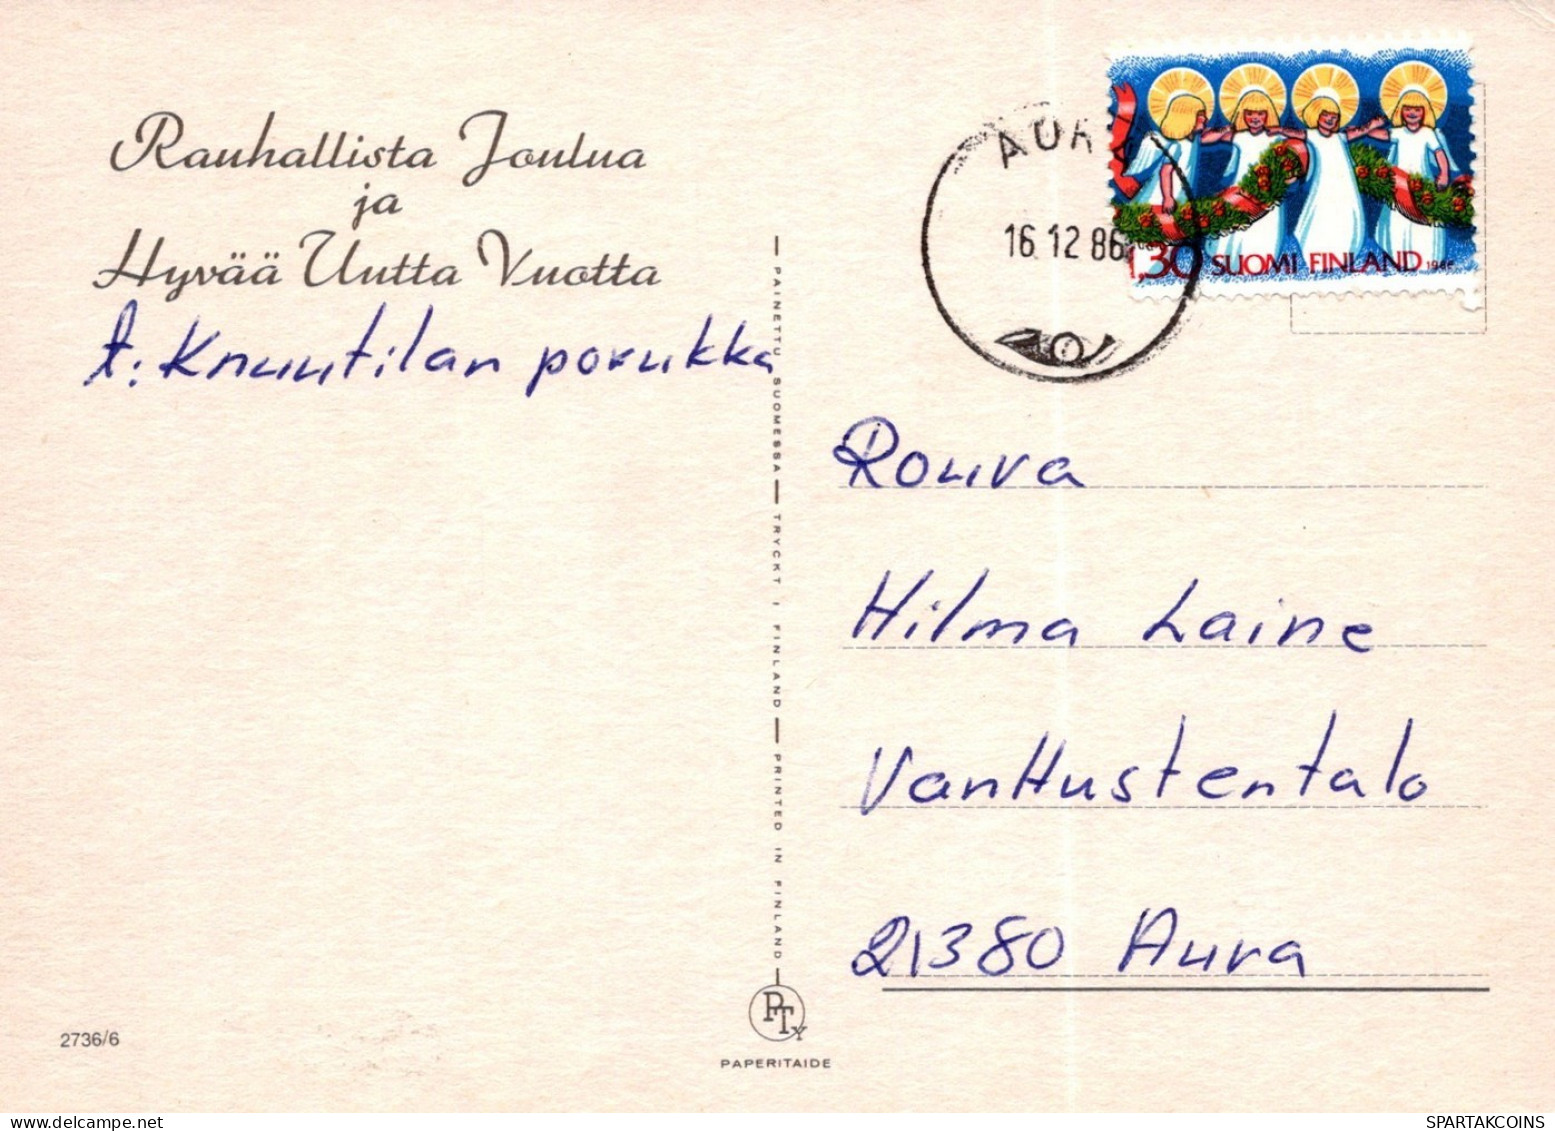 Rauhallista Joulua
ja
Hyvää Uutta Vuotta
t: Knuutilan porukka
AURA
16.12 86
1,30 SUOMI FINLAND 1986
Rouva
Hilma Laine
VanHustentalo
21380 Aura
PAINETTU SUOMESSA — TRYCKT I FINLAND — PRINTED IN FINLAND
PTY
PAPERITAIDE
2736/6
SPARTAKCOINS